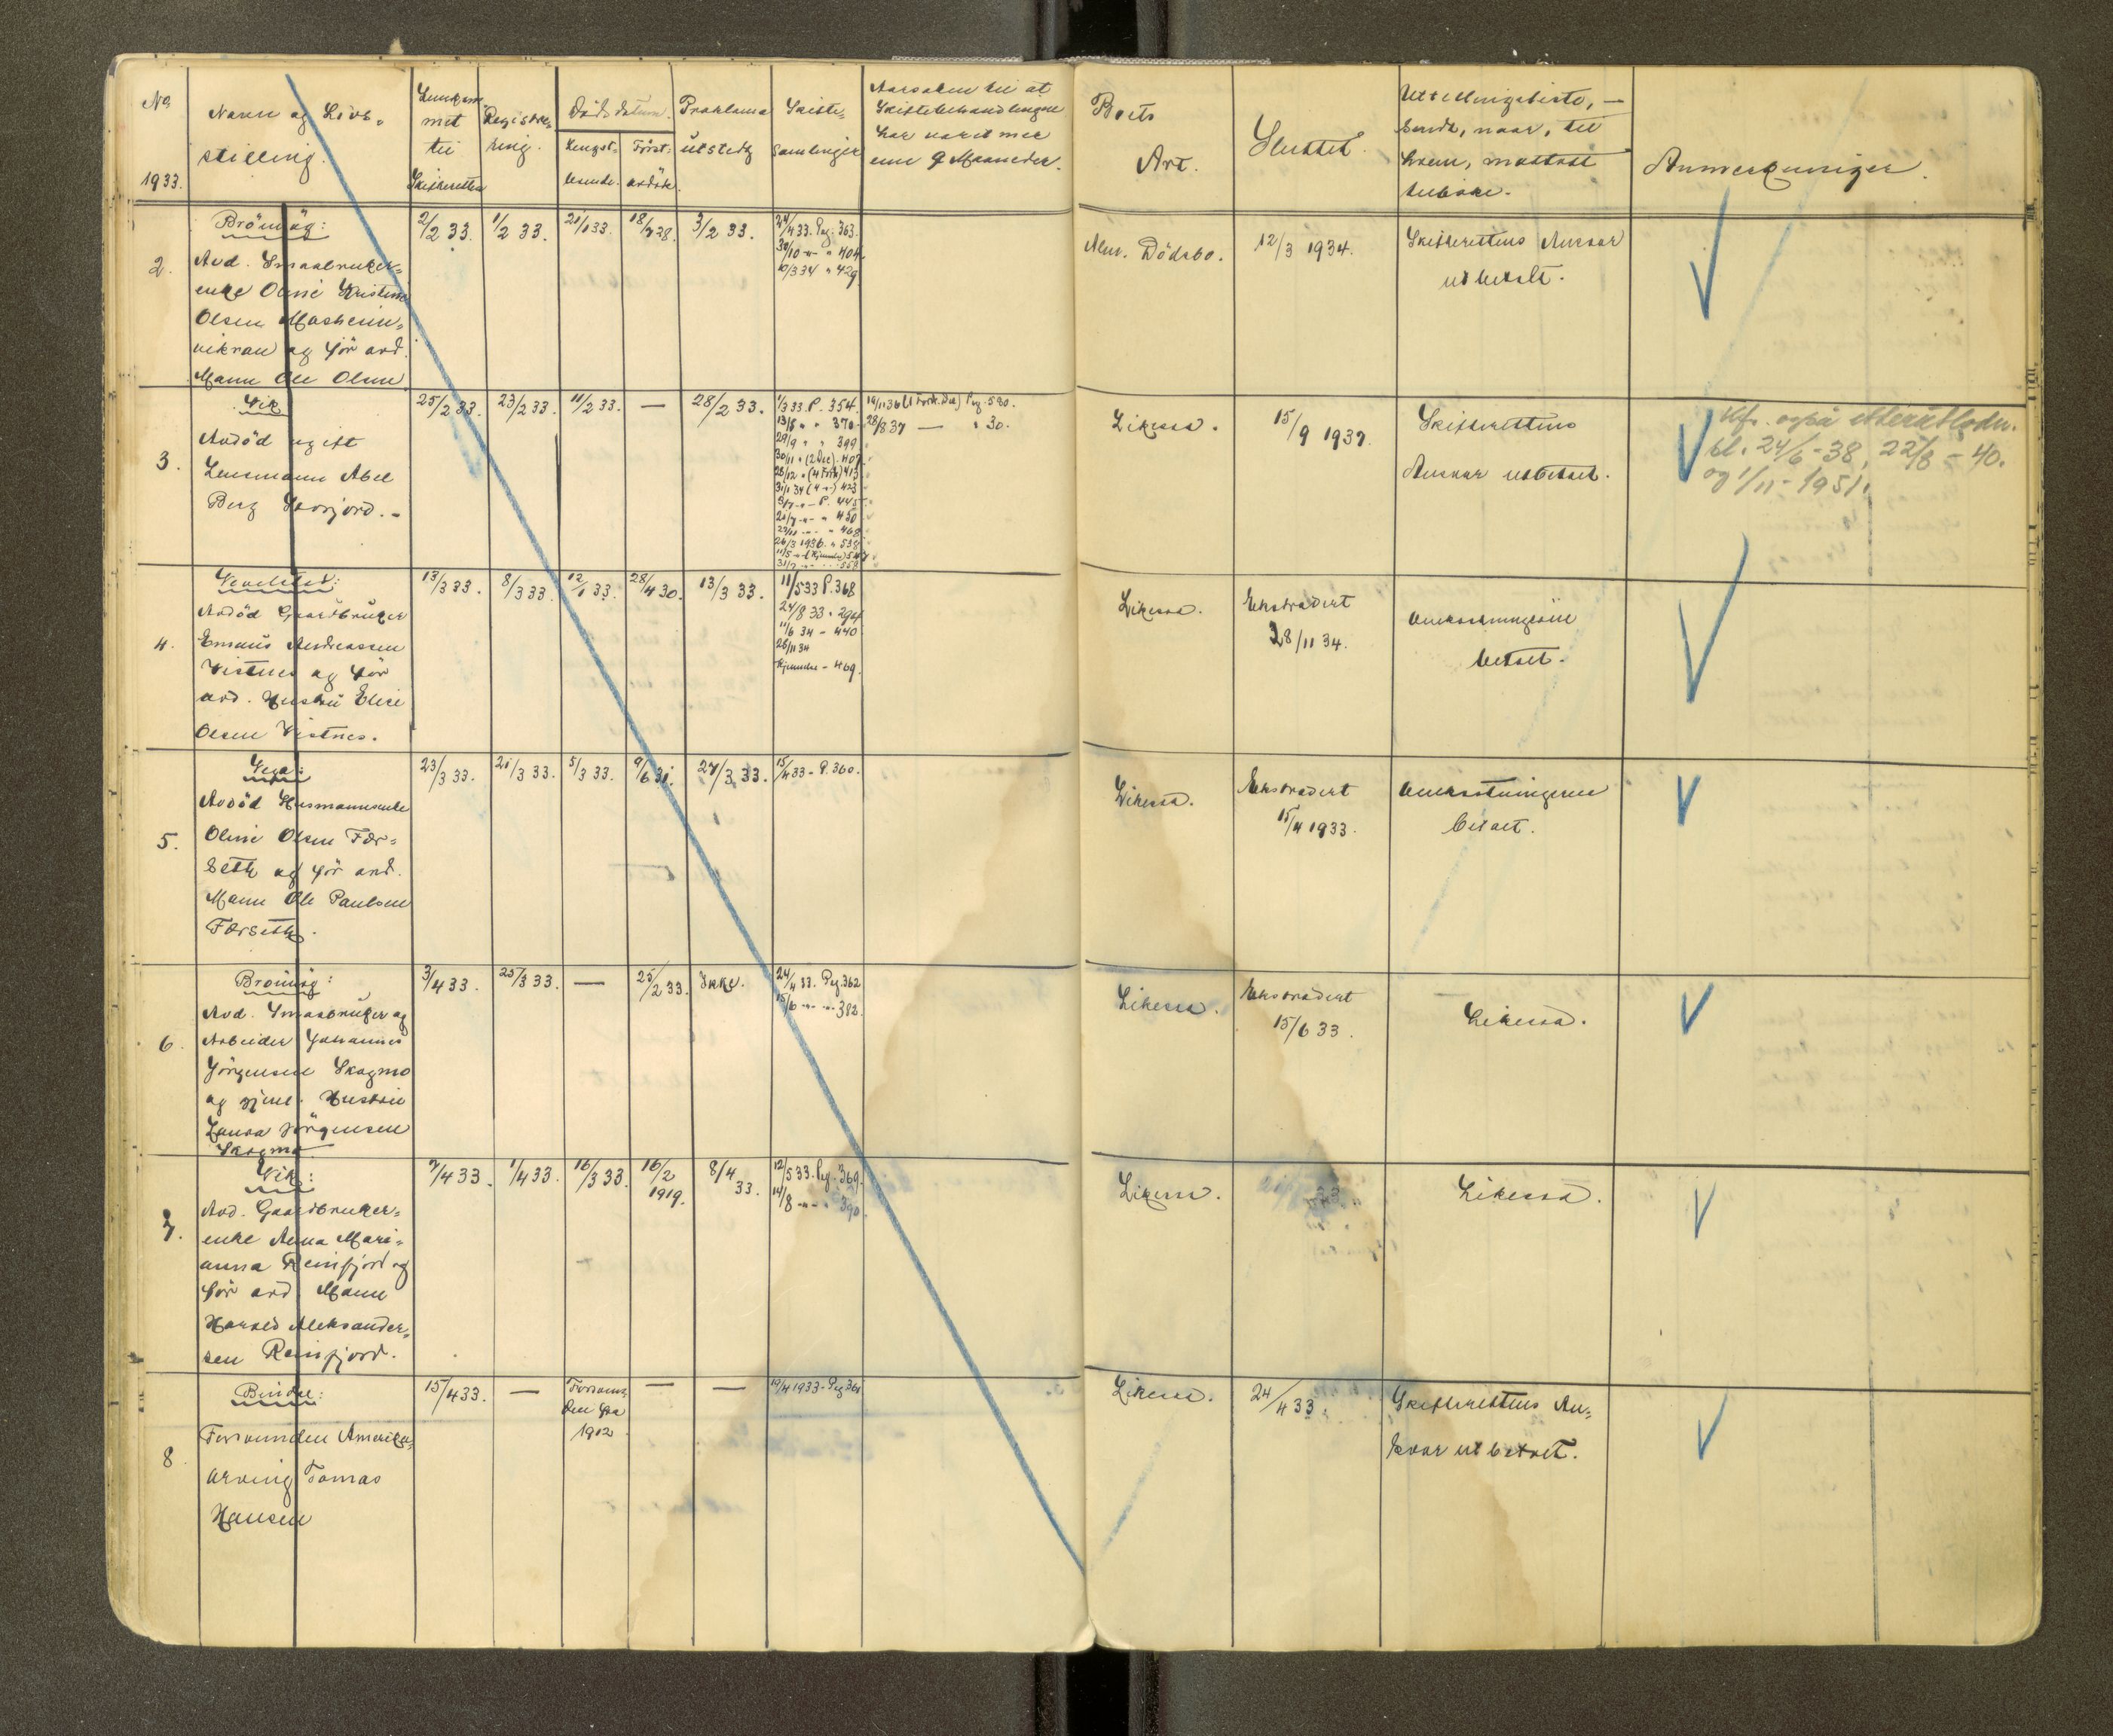 No.
1933.
Navn og Livs-
stilling.
Innkom-
met
til
Skifteretten
Registre-
ring.
Dödsdatum.
Lengst-
levende.
Först-
avdöde.
Proklama
utstedt
Skifte-
samlinger
Aarsaken til at
Skiftebehandlingen
har varet mer
enn 9 Maaneder.
Boets
Art.
Sluttet.
Utdelingsliste, -
Sendt, naar, til
hvem, mottatt
tilbake.
Anmerkninger.
2.
Brönnöy:
Avd. Smaabruker-
enke Oline Kristine
Olsen
og för avd.
Mann Ole Olsen
2/2 33.
1/2 33.
21/1 33.
3/2 33.
24/4 33. Pag. 363.
30/10 -"- " 404.
10/3 34 " 429.
Alm. Dödsbo.
12/3 1934.
Skifterettens Ansvar
utbetalt.
3.
Vik
Avdöd ugift
Lensmann Abel
Berg
25/2 33.
23/2 33.
11/2 33.
—
28/2 33.
1/3 33. P. 354.
13/6 " " 370.
29/9 " " 399.
28/8 37 — " 30.
Likesaa.
15/9 1937.
Skifterettens
Ansvar utbetalt.
Jfr. også etterutlodn.
bl. 24/6-38, 22/8-40.
og 1/11-1951.
4.
Vevelstad:
Avdöd Gaardbruker
Emaus Andreassen
Vistnes og för
avd. Hustru Elise
Olsen Vistnes.
13/3 33.
8/3 33.
12/1 33.
28/4 30.
13/3 33.
11/5 33 P. 368
24/8 33 " 294
11/6 34 - 440
28/11 34
Kjennelse - 469.
Likesaa.
Ekstradert
28/11 34.
Omkostningene
betalt.
5.
Vega:
Avdöd Husmannsenke
Oline Olsen Fær-
seth og för avd.
Mann Ole Paulsen
Færseth.
23/3 33.
21/3 33.
5/3 33.
9/6 31.
27/3 33.
15/4 33 - P. 360.
Likesaa.
Ekstradert
15/4 1933.
Omkostningene
betalt.
6.
Brönnöy:
Avd. Smaabruker og
Arbeider Johannes
Jörgensen Skogmo
og gjenl. Hustru
Laura Jörgensen
Skogmo
3/4 33.
25/3 33.
—
25/2 33.
Ikke.
24/4 33. Pag. 362
15/6 -"- -"- 382.
Likesaa.
Ekstradert
15/6 33.
Likesaa.
7.
Vik:
Avd. Gaardbruker-
enke Anna Mari-
anna Reinfjord og
för avd. Mann
Harald Aleksander-
sen Reinfjord.
7/4 33.
1/4 33.
16/3 33.
16/2
1919.
8/4
33.
12/5 33. Pag. 369.
14/8 -"- " 390.
Likesaa.
Likesaa.
8.
Bindal:
Forsvunden Amerika-
arving Tomas
Hansen
15/4 33.
—
Forsvun-
den fra
1902
—
—
19/4 1933 - Pag. 361
Likesaa.
24/4 33.
Skifterettens An-
svar utbetalt.